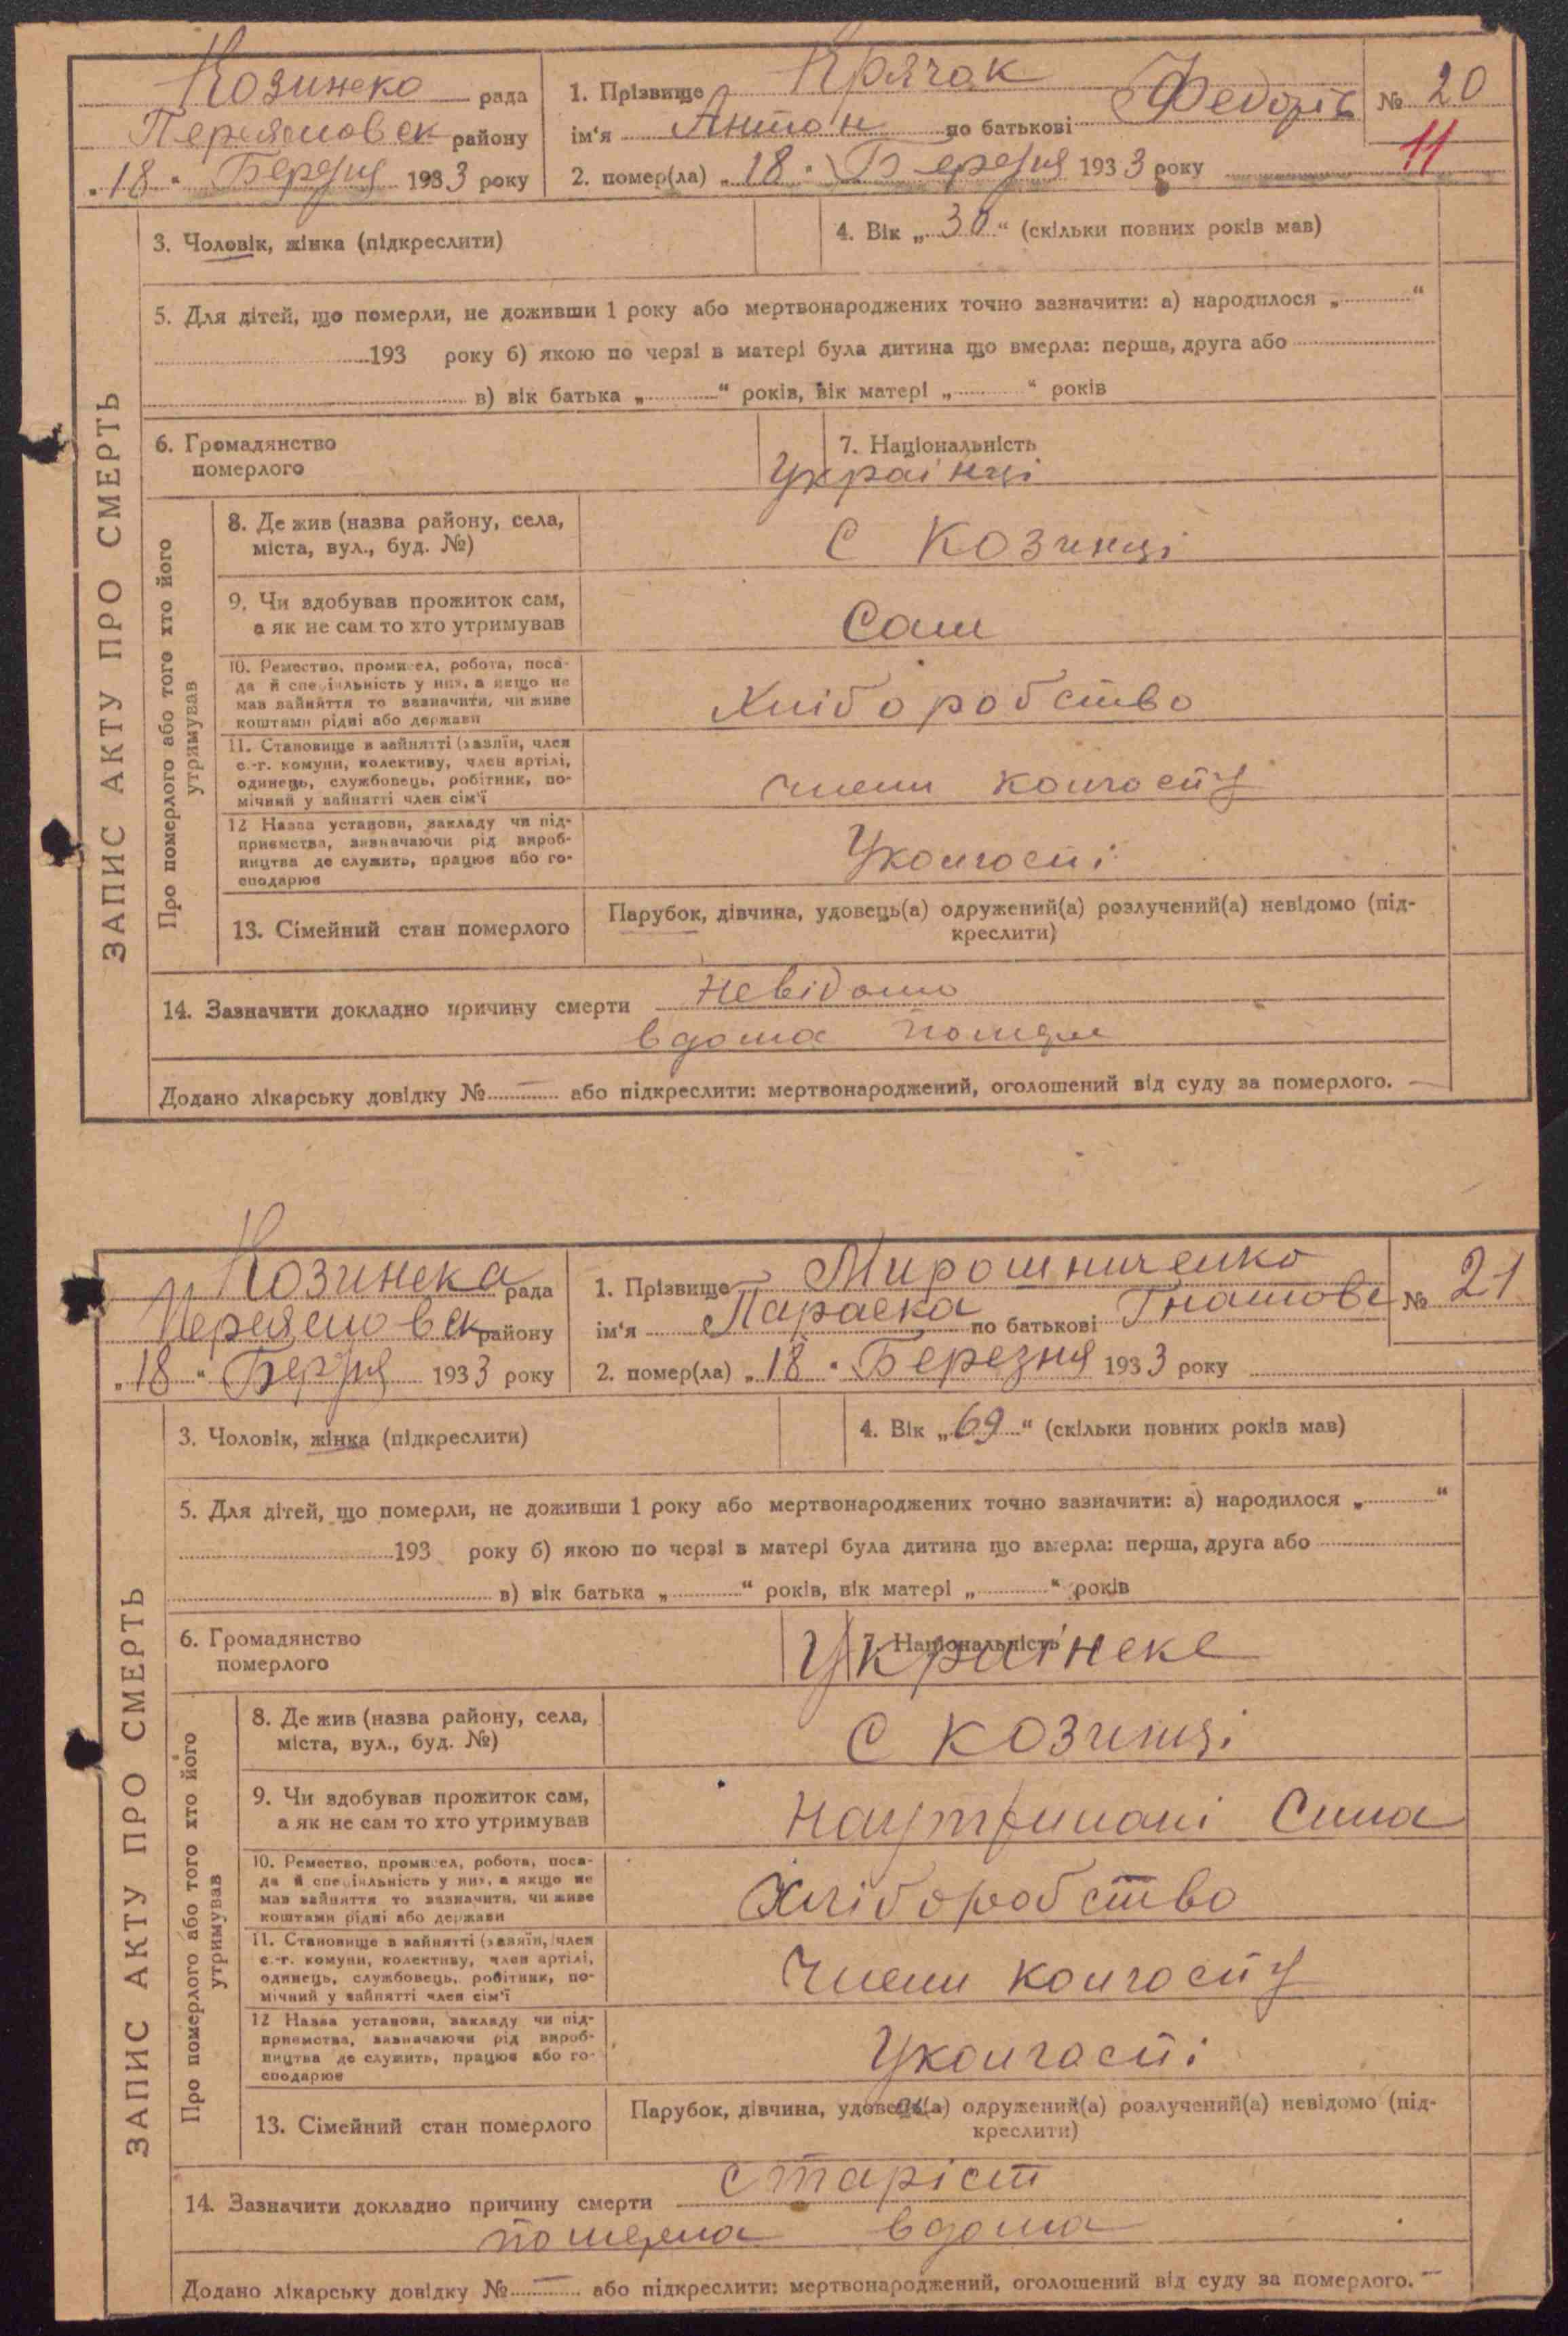 Козинско рада
Переяслов ск району
„18“ Березня 1933 року
1. Прізвище Крячок
ім‘я Антон по батькові Федорів
2. помер(ла) „18“ Березня 1933 року
№ 20
11
3. Чоловік, жінка (підкреслити)
4. Вік „30“ (скільки повних років мав)
5. Для дітей, що померли, не доживши 1 року або мертвонароджених точно зазначити: а) народилося „ “
193 року б) якою по черзі в матері була дитина що вмерла: перша, друга або
в) вік батька „ “ років, вік матері „ “ років
6. Громадянство
померлого
7. Національність
Українці
ЗАПИС АКТУ ПРО СМЕРТЬ
Про померлого або того хто його
утримував
8. Де жив (назва району, села,
міста, вул., буд. №)
С Козинці
9. Чи здобував прожиток сам,
а як не сам то хто утримував
Сам
10. Ремество, промисел, робота, поса-
да й спеціяльність у них, а якщо не
мав зайняття то зазначити, чи живе
коштами рідні або держави
Хліборобство
11. Становище в зайнятті (хазяїн, член
с.-г. комуни, колективу, член артілі,
одинець, службовець, робітник, по-
мічний у зайнятті член сім‘ї
член колгоспу
12 Назва установи, закладу чи під-
приємства, зазначаючи рід вироб-
ництва де служить, працює або го-
сподарює
Уколгоспі
13. Сімейний стан померлого
Парубок, дівчина, удовець(а) одружений(а) розлучений(а) невідомо (під-
креслити)
14. Зазначити докладно причину смерти невідомо
вдома помер
Додано лікарську довідку № — або підкреслити: мертвонароджений, оголошений від суду за померлого. —
Козинска рада
Переяслов ск району
„18“ Березня 1933 року
1. Прізвище Мирошниченко
ім‘я Параска по батькові Гнатове
2. помер(ла) „18“ Березня 1933 року
№ 21
3. Чоловік, жінка (підкреслити)
4. Вік „69“ (скільки повних років мав)
5. Для дітей, що померли, не доживши 1 року або мертвонароджених точно зазначити: а) народилося „ “
193 року б) якою по черзі в матері була дитина що вмерла: перша, друга або
в) вік батька „ “ років, вік матері „ “ років
6. Громадянство
померлого
7. Національність
Українске
ЗАПИС АКТУ ПРО СМЕРТЬ
Про померлого або того хто його
утримував
8. Де жив (назва району, села,
міста, вул., буд. №)
С Козинці
9. Чи здобував прожиток сам,
а як не сам то хто утримував
Сина
10. Ремество, промисел, робота, поса-
да й спеціяльність у них, а якщо не
мав зайняття то зазначити, чи живе
коштами рідні або держави
Хліборобство
11. Становище в зайнятті (хазяїн, член
с.-г. комуни, колективу, член артілі,
одинець, службовець, робітник, по-
мічний у зайнятті член сім‘ї
Член колгоспу
12 Назва установи, закладу чи під-
приємства, зазначаючи рід вироб-
ництва де служить, працює або го-
сподарює
Уколгоспі
13. Сімейний стан померлого
Парубок, дівчина, удовець(а) одружений(а) розлучений(а) невідомо (під-
креслити)
14. Зазначити докладно причину смерти старіст
померла вдома
Додано лікарську довідку № — або підкреслити: мертвонароджений, оголошений від суду за померлого. —